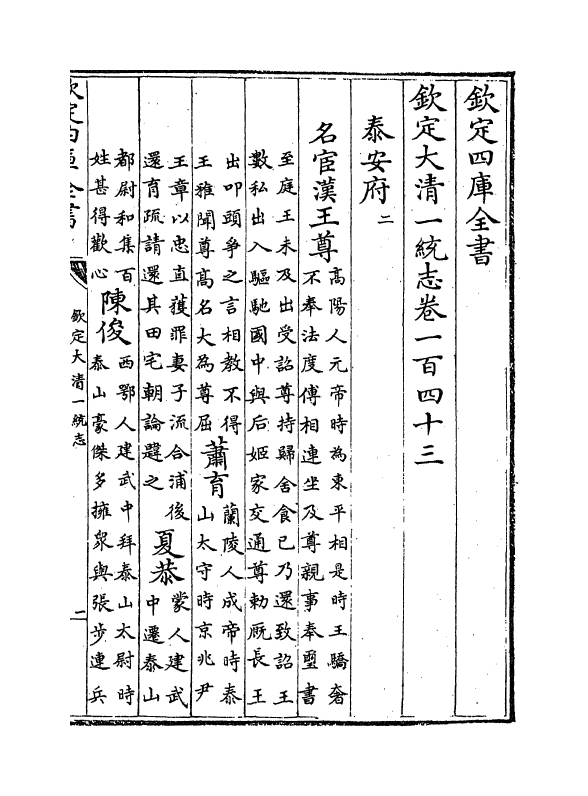 欽定四庫全書
欽定大清一統志卷一百四十三
泰安府二
名宦漢王尊高陽人元帝時為東平相是時王驕奢
不奉法度傅相連坐及尊視事奉璽書
至庭王未及出受詔尊持歸舍食已乃還致詔王
數私出入驅馳國中與后姬家交通尊勅厩長王
出叩頭爭之言相教不得
王雅聞尊髙名大為尊屈
蕭育蘭陵人成帝時泰
山太守時京兆尹
王章以忠直獲罪妻子流合浦後
還育疏請還其田宅朝論韙之
夏恭蒙人建武
中遷泰山
都尉和集百
姓甚得歡心
陳俊西鄂人建武中拜泰山太尉時
泰山豪傑多擁衆與張步連兵
欽定四庫全書
欽定大清一統志
二